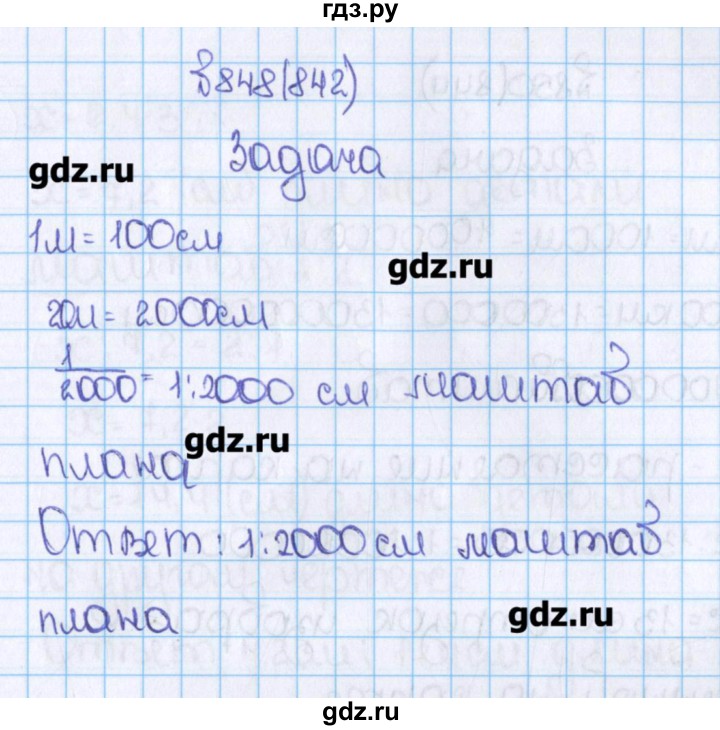 гдз.ру
№848(842)
Задача
gdz.ru
1м = 100см
gdz.ru
20м = 2000см
1/2000 = 1:2000 см маштаб
gdz.ru
плана
Ответ: 1:2000 см маштаб
gdz.ru
плана
gdz.ru